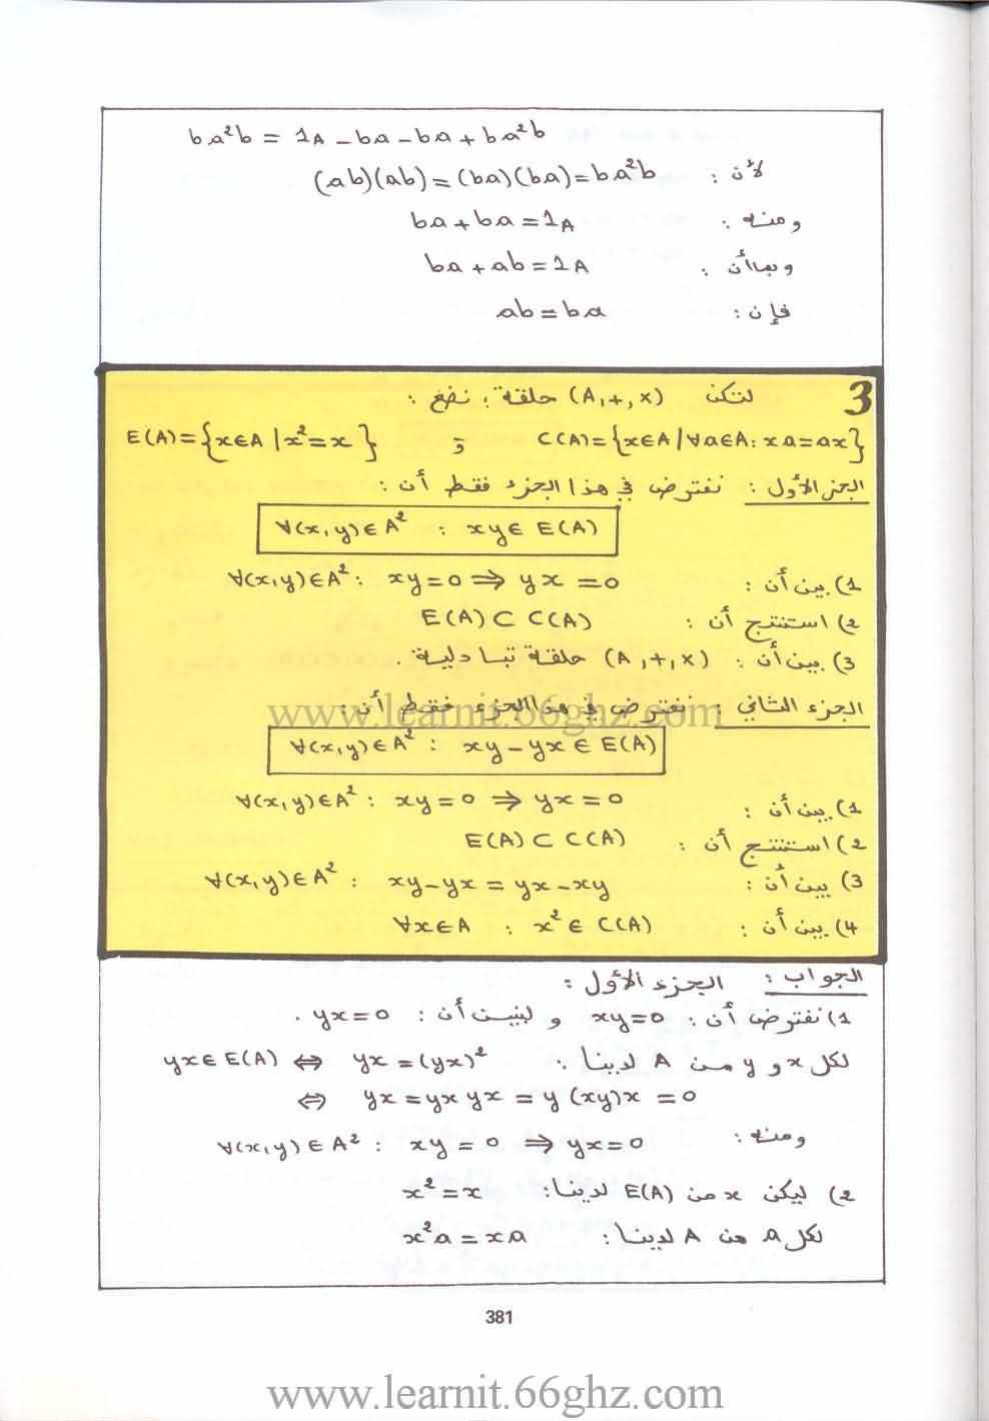 ba²b = 1A - ba - ba + ba²b
لأن : (ab)(ab) = (ba)(ba) = ba²b
ومنه : ba + ba = 1A
وبما أن : ba + ab = 1A
فإن : ab = ba
3 لتكن (A,+,×) حلقة ؛ نضع :
C(A) = {x∈A / ∀a∈A : xa = ax} و E(A) = {x∈A | x² = x}
الجزء الأول : نفترض في هذا الجزء فقط أن :
∀(x,y)∈A² : xy ∈ E(A)
1) بين أن : ∀(x,y)∈A² : xy = 0 ⇒ yx = 0
2) استنتج أن : E(A) ⊂ C(A)
3) بين أن : (A,+,×) حلقة تبادلية .
الجزء الثاني : نفترض في هذا الجزء فقط أن :
www.learnit.66ghz.com
∀(x,y)∈A² : xy - yx ∈ E(A)
1) بين أن : ∀(x,y)∈A² : xy = 0 ⇒ yx = 0
2) استنتج أن : E(A) ⊂ C(A)
3) بين أن : ∀(x,y)∈A² : xy - yx = yx - xy
4) بين أن : ∀x∈A : x² ∈ C(A)
الجواب : الجزء الأول :
1) نفترض أن : xy = 0 و لنبين أن : yx = 0 .
لكل x و y من A لدينا : yx ∈ E(A) ⇔ yx = (yx)²
⇔ yx = yx yx = y(xy)x = 0
ومنه : ∀(x,y)∈A² : xy = 0 ⇒ yx = 0
2) ليكن x من E(A) لدينا : x² = x
لكل a من A لدينا : x²a = xa
381
www.learnit.66ghz.com